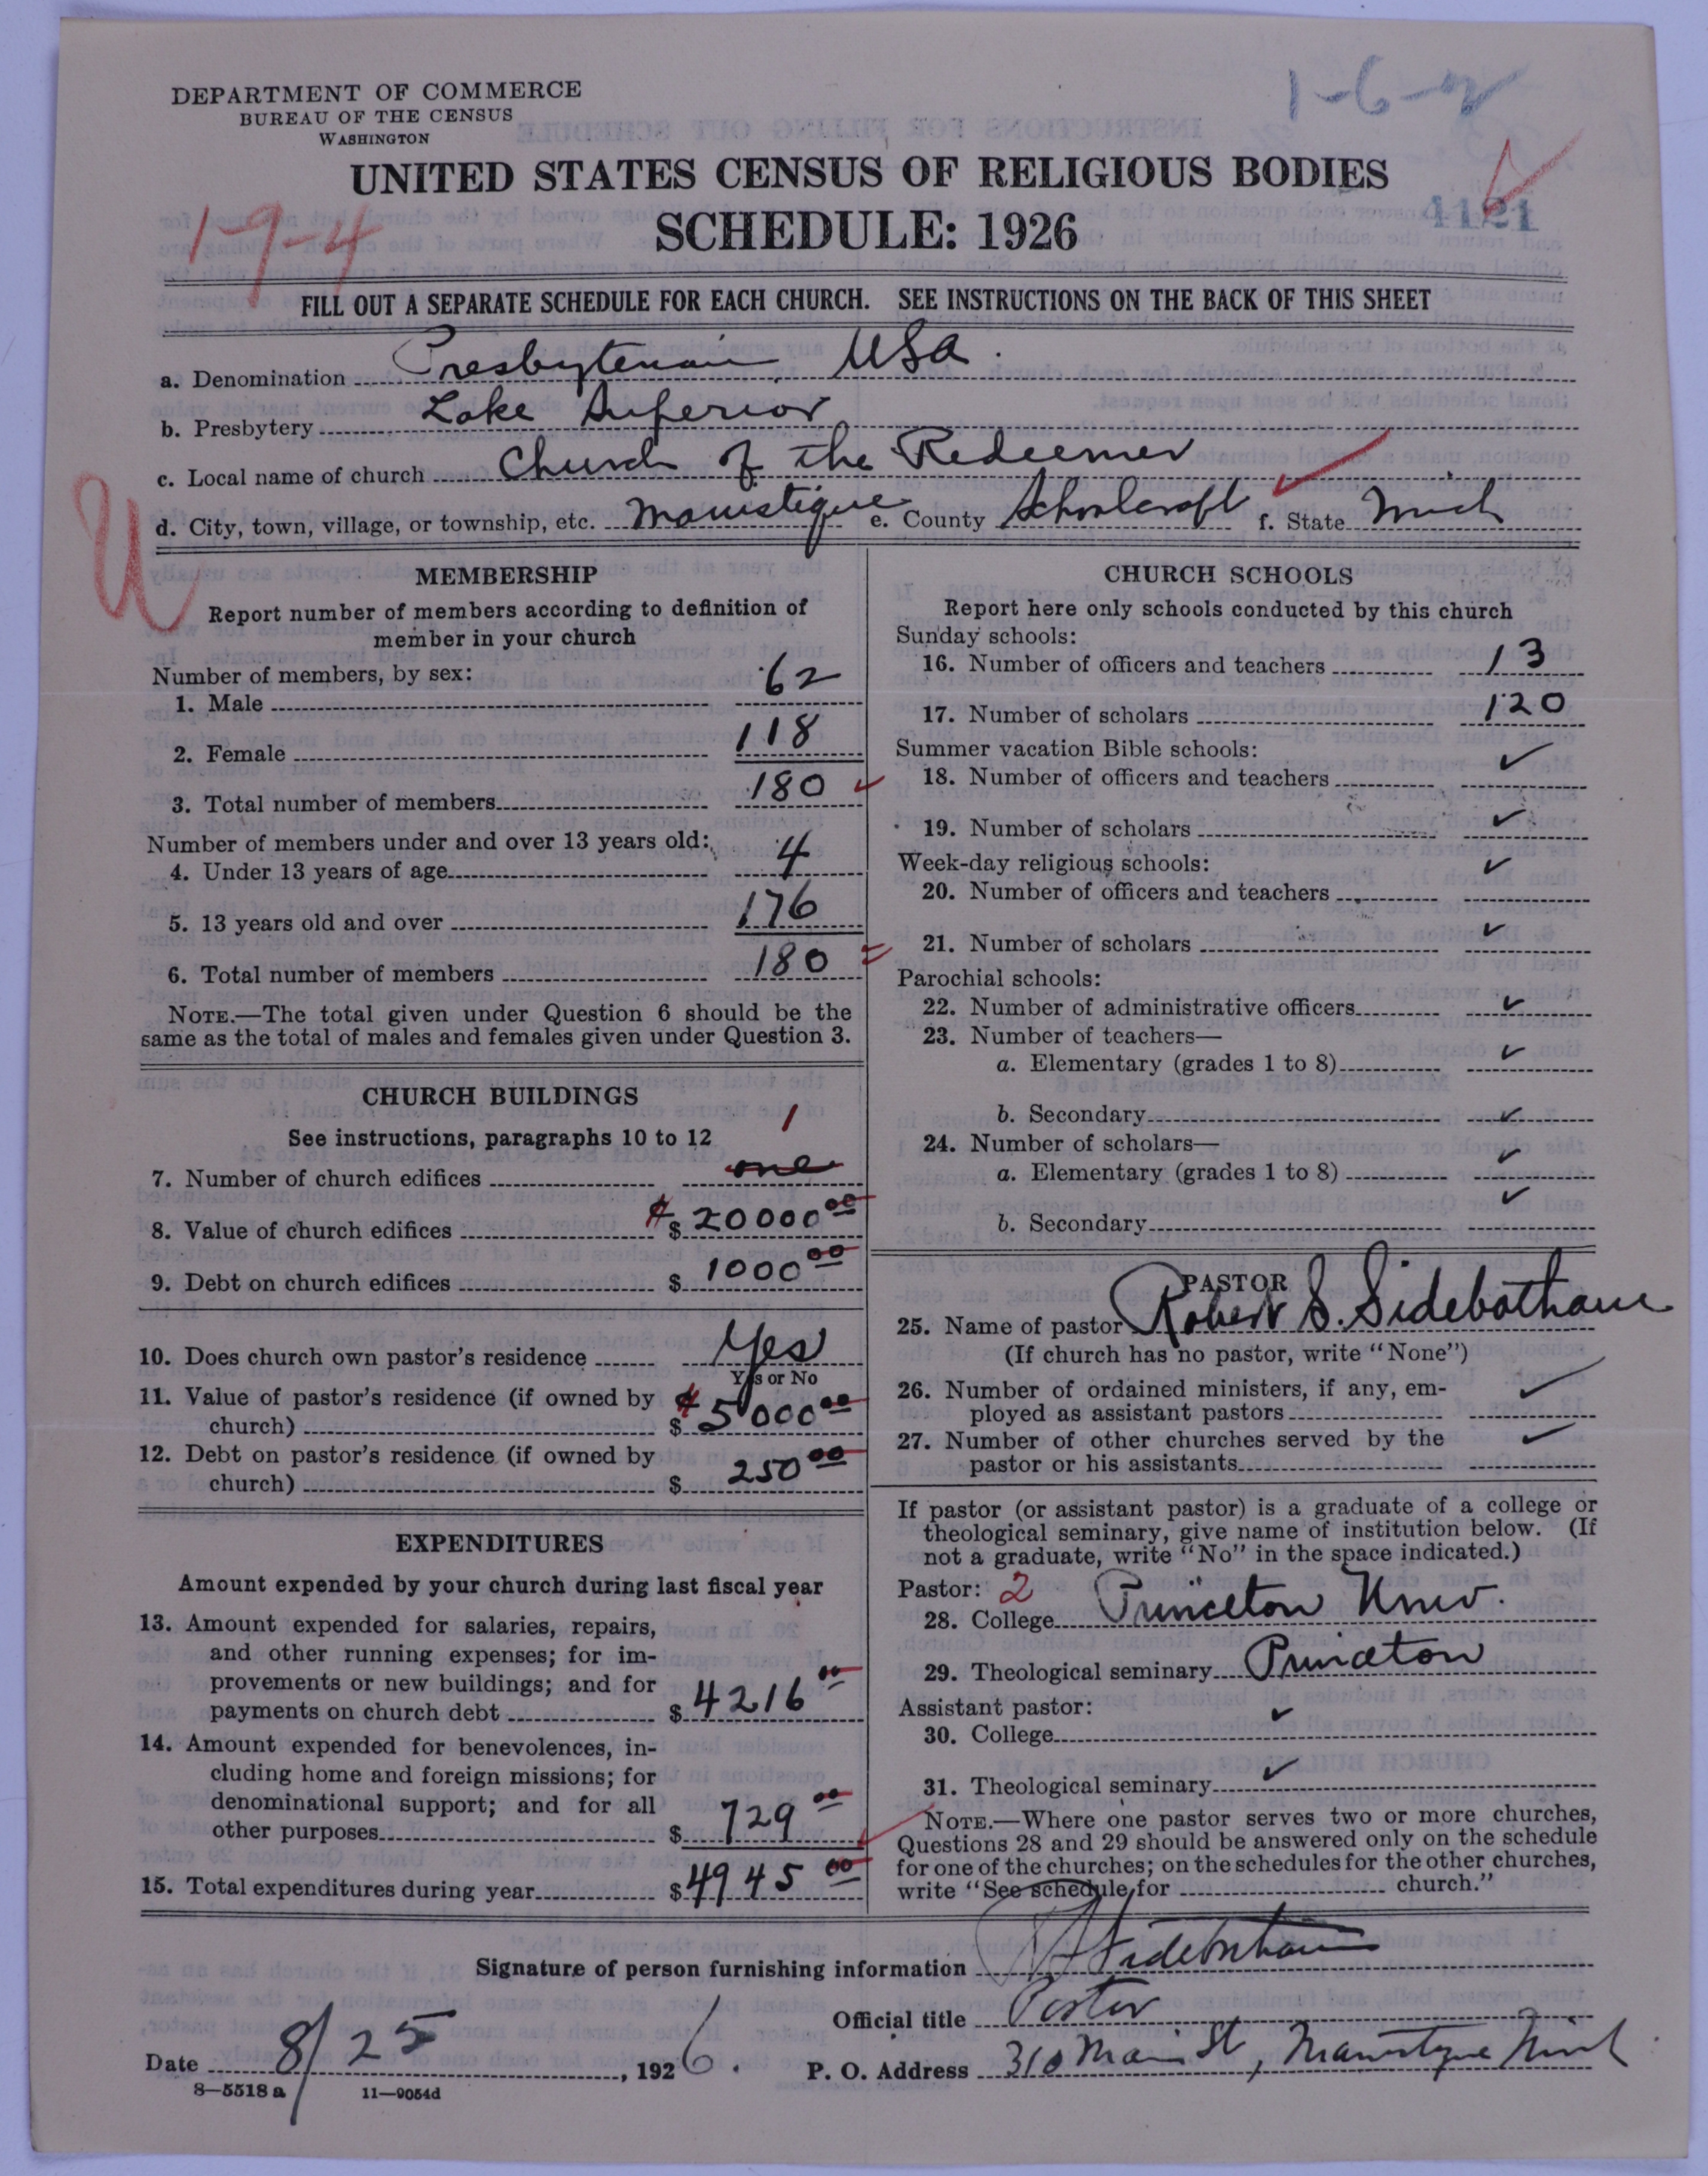 DEPARTMENT OF COMMERCE
BUREAU OF THE CENSUS
WASHINGTON
1-6-2
UNITED STATES CENSUS OF RELIGIOUS BODIES
SCHEDULE: 1926
1-9-4
4121
FILL OUT A SEPARATE SCHEDULE FOR EACH CHURCH. SEE INSTRUCTIONS ON THE BACK OF THIS SHEET
a. Denomination Presbyterian, USA.
b. Presbytery Lake Superior
c. Local name of church Church of the Redeemer
d. City, town, village, or township, etc. Manistique e. County Schoolcraft f. State Mich
MEMBERSHIP
Report number of members according to definition of
member in your church
Number of members, by sex:
1. Male 62
2. Female 118
3. Total number of members 180
Number of members under and over 13 years old:
4. Under 13 years of age 4
5. 13 years old and over 176
6. Total number of members 180
NOTE.—The total given under Question 6 should be the
same as the total of males and females given under Question 3.
CHURCH BUILDINGS
See instructions, paragraphs 10 to 12
1
7. Number of church edifices one
8. Value of church edifices $ 20000 00
9. Debt on church edifices $ 1000 00
10. Does church own pastor's residence Yes
Yes or No
11. Value of pastor's residence (if owned by
church) $ 5000 00
12. Debt on pastor's residence (if owned by
church) $ 250 00
EXPENDITURES
Amount expended by your church during last fiscal year
13. Amount expended for salaries, repairs,
and other running expenses; for im-
provements or new buildings; and for
payments on church debt $ 4216 00
14. Amount expended for benevolences, in-
cluding home and foreign missions; for
denominational support; and for all
other purposes $ 729 00
15. Total expenditures during year $ 4945 00
CHURCH SCHOOLS
Report here only schools conducted by this church
Sunday schools:
16. Number of officers and teachers 13
17. Number of scholars 120
Summer vacation Bible schools:
18. Number of officers and teachers ✓
19. Number of scholars ✓
Week-day religious schools:
20. Number of officers and teachers ✓
21. Number of scholars ✓
Parochial schools:
22. Number of administrative officers ✓
23. Number of teachers—
a. Elementary (grades 1 to 8) ✓
b. Secondary ✓
24. Number of scholars—
a. Elementary (grades 1 to 8) ✓
b. Secondary ✓
PASTOR
25. Name of pastor Robert S. Sidebotham
(If church has no pastor, write "None")
26. Number of ordained ministers, if any, em-
ployed as assistant pastors ✓
27. Number of other churches served by the
pastor or his assistants ✓
If pastor (or assistant pastor) is a graduate of a college or
theological seminary, give name of institution below. (If
not a graduate, write "No" in the space indicated.)
Pastor: 2
28. College Princeton Univ.
29. Theological seminary Princeton
Assistant pastor:
30. College ✓
31. Theological seminary ✓
NOTE.—Where one pastor serves two or more churches,
Questions 28 and 29 should be answered only on the schedule
for one of the churches; on the schedules for the other churches,
write "See schedule for church."
Signature of person furnishing information Sidebotham
Official title Pastor
Date 8/25, 1926. P. O. Address 310 Main St, Manistique Mich
8—5518 a 11—9054d